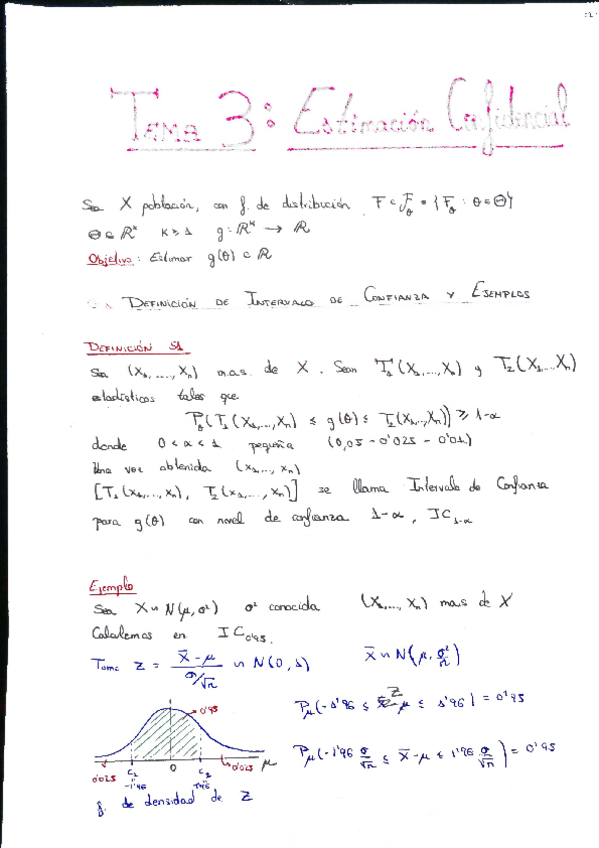 Tema 3: Estimación Confidencial
Sea X población, con f. de distribución F ∈ ℱ_θ = {F_θ : θ ∈ Θ}
Θ ⊆ ℝ^k k ≥ 1 g: ℝ^k → ℝ
Objetivo: Estimar g(θ) ∈ ℝ
Definición de Intervalo de Confianza y Ejemplos
Definición
Sea (X₁, ..., Xₙ) m.a.s. de X. Sean T₁(X₁,...,Xₙ) y T₂(X₁...Xₙ)
estadísticos tales que
P_θ(T₁(X₁,...,Xₙ) ≤ g(θ) ≤ T₂(X₁...,Xₙ)) ≥ 1-α
donde 0 < α < 1 pequeña (0,05 - 0'025 - 0'01)
Una vez obtenida (x₁,..., xₙ)
[T₁(x₁,...,xₙ), T₂(x₁,...,xₙ)] se llama Intervalo de Confianza
para g(θ) con nivel de confianza 1-α, IC_{1-α}
Ejemplo
Sea X ~ N(μ, σ²) σ² conocida (X₁,..., Xₙ) mas de X
Calculemos en IC_{0'95}.
Toma Z = (X̄ - μ)/(σ/√n) ~ N(0,1) X̄ ~ N(μ, σ²/n)
P_μ(-1'96 ≤ Z ≤ 1'96) = 0'95
P_μ(-1'96 σ/√n ≤ X̄-μ ≤ 1'96 σ/√n) = 0'95
0'95
0'025 C₁ 0 C₂ 0'025 μ
-1'96 1'96
f. de densidad de Z